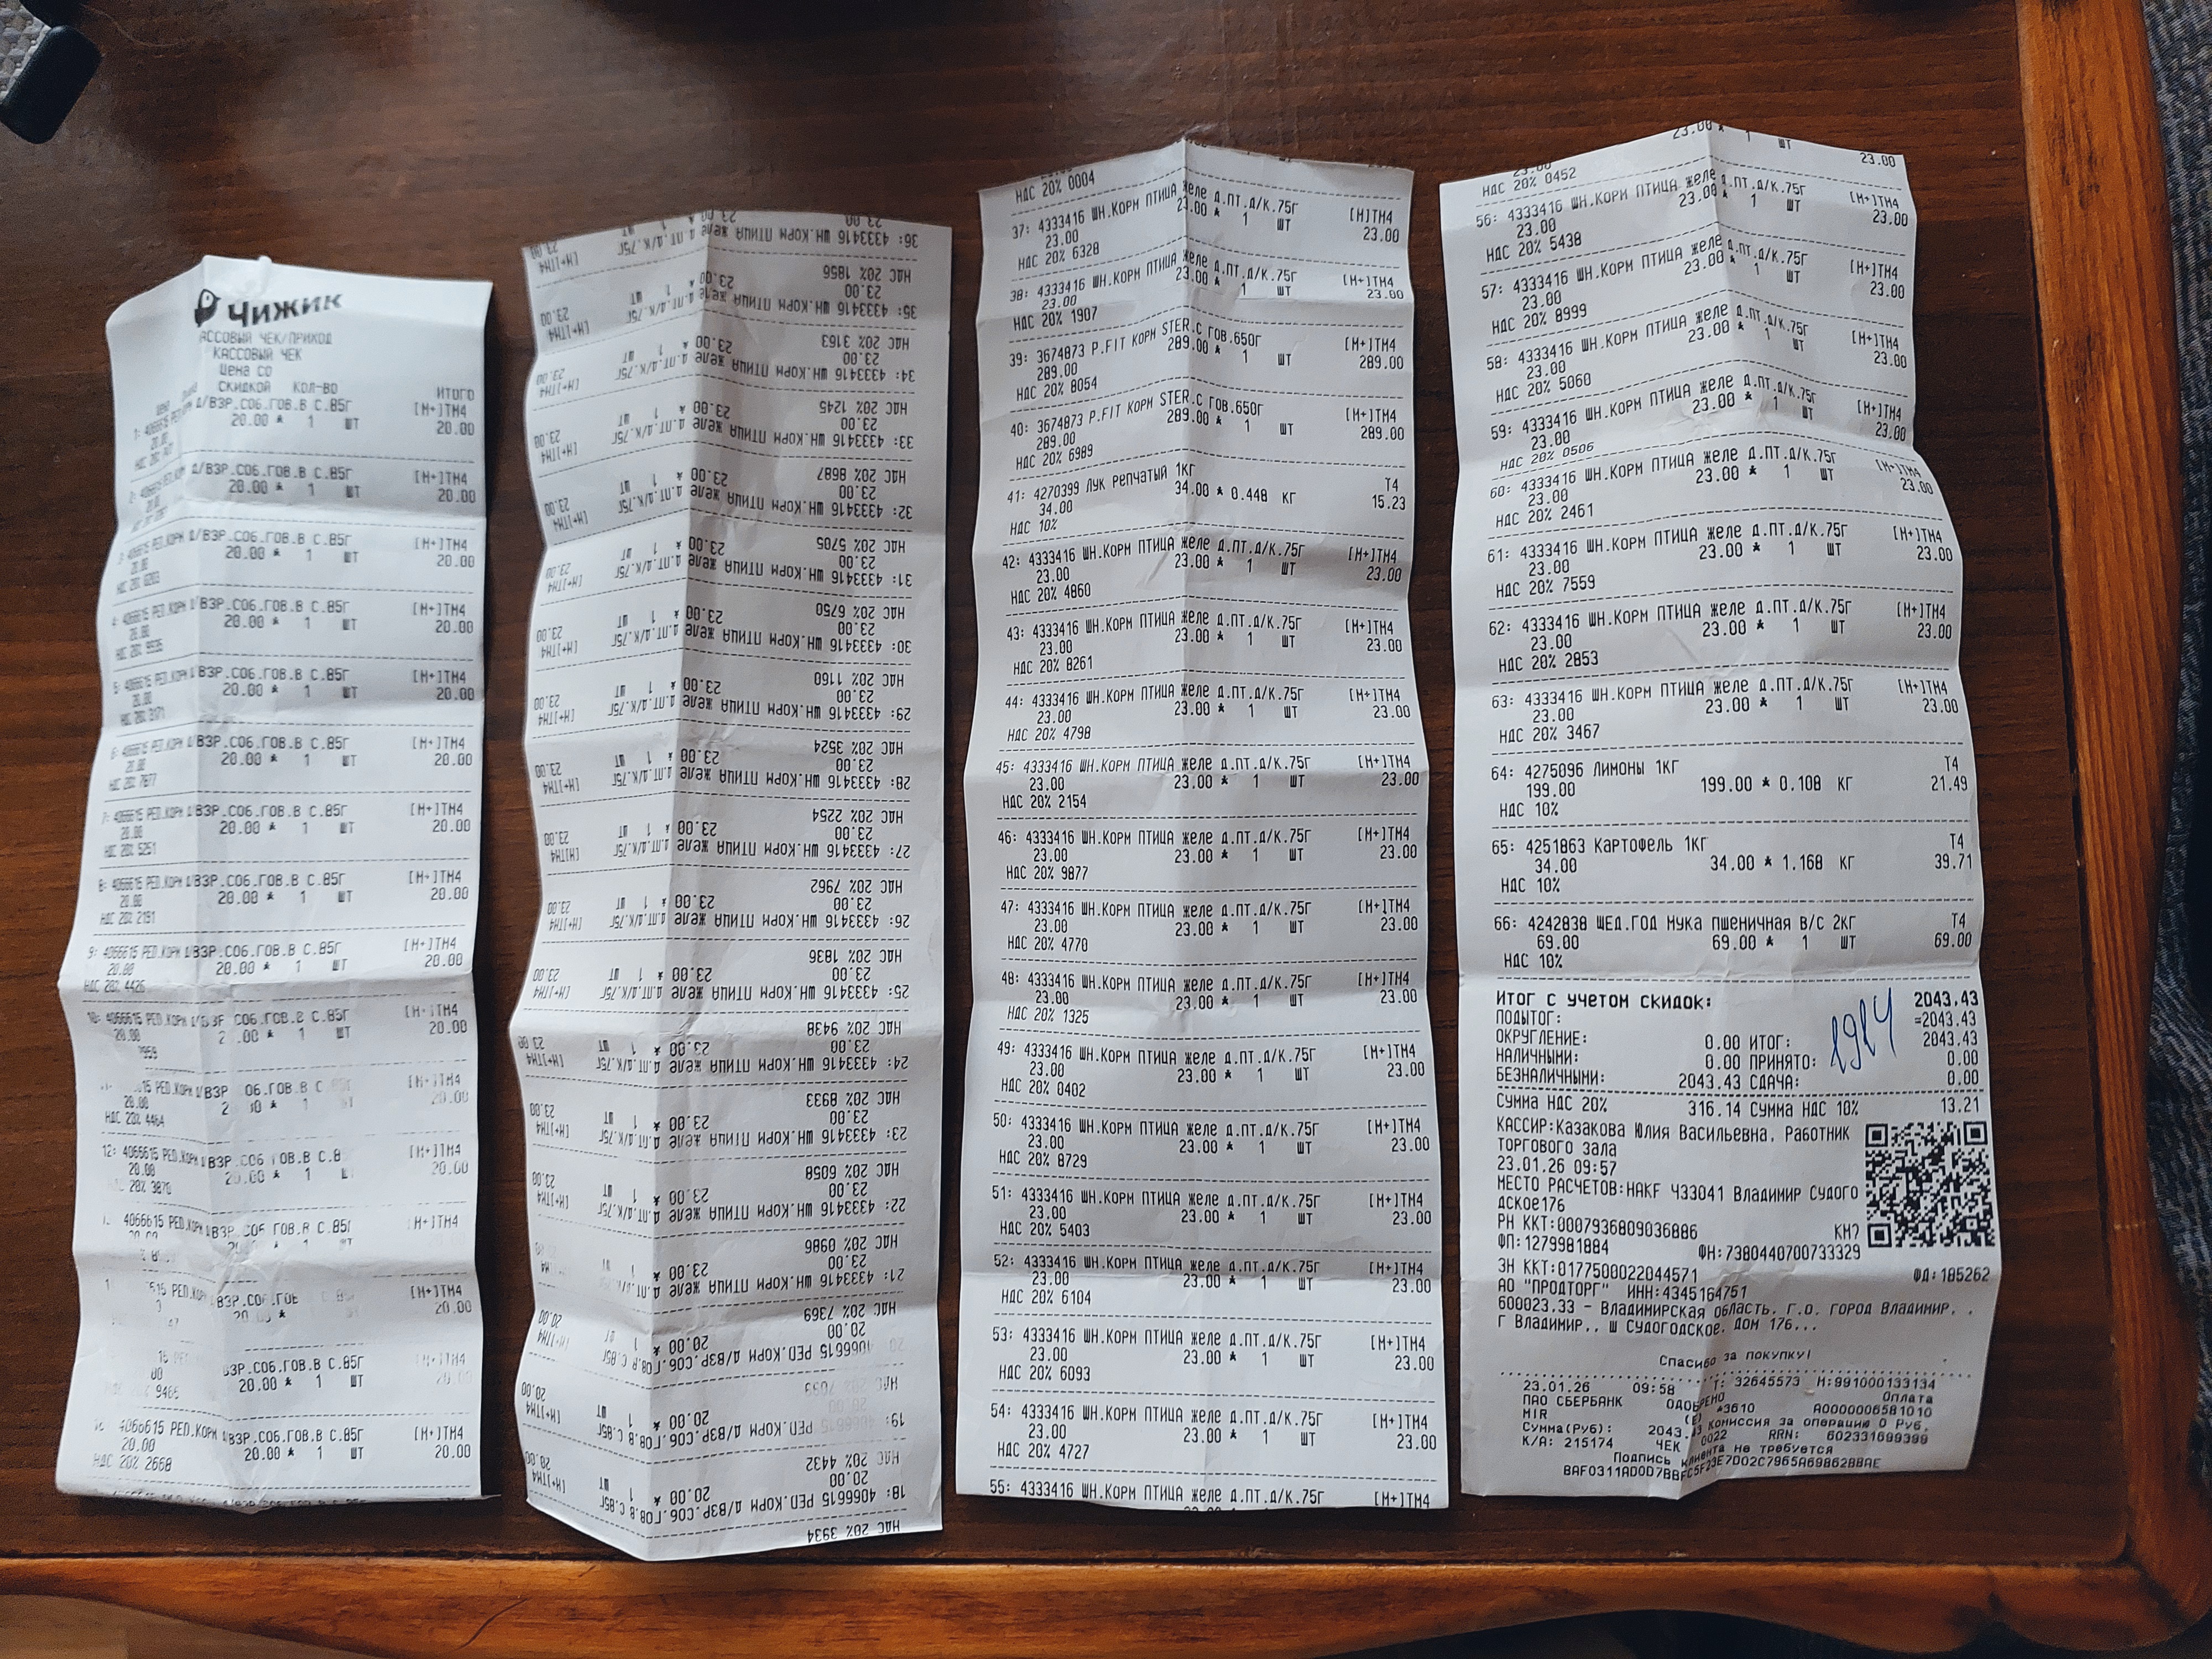 Чижик
АССОВЫЙ ЧЕК/ПРИХОД
КАССОВЫЙ ЧЕК
Цена со
скидкой Кол-во Итого
1: 4066615 РЕД.КОРМ Д/ВЗР.СОБ.ГОВ.В С.85Г [М+]ТМ4
20.00 * 1 ШТ 20.00
20.00
2: 4066615 РЕД.КОРМ Д/ВЗР.СОБ.ГОВ.В С.85Г [М+]ТМ4
20.00 * 1 ШТ 20.00
20.00
3: 4066615 РЕД.КОРМ Д/ВЗР.СОБ.ГОВ.В С.85Г [М+]ТМ4
20.00 * 1 ШТ 20.00
20.00
4: 4066615 РЕД.КОРМ Д/ВЗР.СОБ.ГОВ.В С.85Г [М+]ТМ4
20.00 * 1 ШТ 20.00
20.00
5: 4066615 РЕД.КОРМ Д/ВЗР.СОБ.ГОВ.В С.85Г [М+]ТМ4
20.00 * 1 ШТ 20.00
20.00
6: 4066615 РЕД.КОРМ Д/ВЗР.СОБ.ГОВ.В С.85Г [М+]ТМ4
20.00 * 1 ШТ 20.00
20.00
НДС 20% 7877
7: 4066615 РЕД.КОРМ Д/ВЗР.СОБ.ГОВ.В С.85Г [М+]ТМ4
20.00 * 1 ШТ 20.00
20.00
НДС 20% 5251
8: 4066615 РЕД.КОРМ Д/ВЗР.СОБ.ГОВ.В С.85Г [М+]ТМ4
20.00 * 1 ШТ 20.00
20.00
НДС 20% 2191
9: 4066615 РЕД.КОРМ Д/ВЗР.СОБ.ГОВ.В С.85Г [М+]ТМ4
20.00 20.00 * 1 ШТ 20.00
НДС 20% 4426
10: 4066615 РЕД.КОРМ СОБ.ГОВ.В С.85Г [М+]ТМ4
20.00 1 ШТ 20.00
РЕД.КОРМ Д/ВЗР ГОВ.В С [М+]ТМ4
20.00 1 20.00
НДС 20% 4464
12: 4066615 РЕД.КОРМ Д/ВЗР.СОБ ГОВ.В С.8 [М+]ТМ4
20.00 20.00 * 1 20.00
20% 3870
4066615 РЕД.КОРМ Д/ВЗР.СОБ ГОВ.В С.85 [М+]ТМ4
РЕД.КОРМ ВЗР.СОБ.ГОВ [М+]ТМ4
20.00 * 20.00
ВЗР.СОБ.ГОВ.В С.85Г [М+]ТМ4
20.00 * 1 ШТ 20.00
9465
4066615 РЕД.КОРМ Д/ВЗР.СОБ.ГОВ.В С.85Г [М+]ТМ4
20.00 20.00 * 1 ШТ 20.00
НДС 20% 2668
НДС 20% 3934
18: 4066615 РЕД.КОРМ Д/ВЗР.СОБ.ГОВ.В С.85Г [М+]ТМ4
20.00 20.00 * 1 ШТ 20.00
НДС 20% 4432
19: 4066615 РЕД.КОРМ Д/ВЗР.СОБ.ГОВ.В С.85Г [М+]ТМ4
20.00 * 1 ШТ 20.00
4066615 РЕД.КОРМ Д/ВЗР.СОБ.ГОВ.В С.85Г
20.00 20.00 * 1 ШТ 20.00
НДС 20% 7369
21: 4333416 ШН.КОРМ ПТИЦА желе
23.00 23.00 * 1
НДС 20% 0986
22: 4333416 ШН.КОРМ ПТИЦА желе д.ПТ.Д/К.75Г [М+]ТМ4
23.00 23.00 * 1 ШТ 23.00
НДС 20% 6058
23: 4333416 ШН.КОРМ ПТИЦА желе д.ПТ.Д/К.75Г [М+]ТМ4
23.00 23.00 * 1 ШТ 23.00
НДС 20% 8933
24: 4333416 ШН.КОРМ ПТИЦА желе д.ПТ.Д/К.75Г [М+]ТМ4
23.00 23.00 * 1 ШТ 23.00
НДС 20% 9438
25: 4333416 ШН.КОРМ ПТИЦА желе д.ПТ.Д/К.75Г [М+]ТМ4
23.00 23.00 * 1 ШТ 23.00
НДС 20% 1836
26: 4333416 ШН.КОРМ ПТИЦА желе д.ПТ.Д/К.75Г [М+]ТМ4
23.00 23.00 * 1 ШТ 23.00
НДС 20% 7962
27: 4333416 ШН.КОРМ ПТИЦА желе д.ПТ.Д/К.75Г [М+]ТМ4
23.00 23.00 * 1 ШТ 23.00
НДС 20% 2254
28: 4333416 ШН.КОРМ ПТИЦА желе д.ПТ.Д/К.75Г [М+]ТМ4
23.00 23.00 * 1 ШТ 23.00
НДС 20% 3524
29: 4333416 ШН.КОРМ ПТИЦА желе д.ПТ.Д/К.75Г [М+]ТМ4
23.00 23.00 * 1 ШТ 23.00
НДС 20% 1160
30: 4333416 ШН.КОРМ ПТИЦА желе д.ПТ.Д/К.75Г [М+]ТМ4
23.00 23.00 * 1 ШТ 23.00
НДС 20% 6750
31: 4333416 ШН.КОРМ ПТИЦА желе д.ПТ.Д/К.75Г [М+]ТМ4
23.00 23.00 * 1 ШТ 23.00
НДС 20% 5705
32: 4333416 ШН.КОРМ ПТИЦА желе д.ПТ.Д/К.75Г [М+]ТМ4
23.00 23.00 * 1 ШТ 23.00
НДС 20% 8687
33: 4333416 ШН.КОРМ ПТИЦА желе д.ПТ.Д/К.75Г [М+]ТМ4
23.00 23.00 * 1 ШТ 23.00
НДС 20% 1245
34: 4333416 ШН.КОРМ ПТИЦА желе д.ПТ.Д/К.75Г [М+]ТМ4
23.00 23.00 * 1 ШТ 23.00
НДС 20% 3163
35: 4333416 ШН.КОРМ ПТИЦА желе д.ПТ.Д/К.75Г [М+]ТМ4
23.00 23.00 * 1 ШТ 23.00
НДС 20% 1856
36: 4333416 ШН.КОРМ ПТИЦА желе д.ПТ.Д/К.75Г [М+]ТМ4
23.00 23.00 * 1 ШТ 23.00
НДС 20% 0004
37: 4333416 ШН.КОРМ ПТИЦА желе д.ПТ.Д/К.75Г [М]ТМ4
23.00 23.00 * 1 ШТ 23.00
НДС 20% 6328
38: 4333416 ШН.КОРМ ПТИЦА желе д.ПТ.Д/К.75Г [М+]ТМ4
23.00 23.00 * 1 ШТ 23.00
НДС 20% 1907
39: 3674873 P.FIT КОРМ STER.С ГОВ.650Г [М+]ТМ4
289.00 289.00 * 1 ШТ 289.00
НДС 20% 8054
40: 3674873 P.FIT КОРМ STER.С ГОВ.650Г [М+]ТМ4
289.00 289.00 * 1 ШТ 289.00
НДС 20% 6989
41: 4270399 Лук репчатый 1кг Т4
34.00 34.00 * 0.448 КГ 15.23
НДС 10%
42: 4333416 ШН.КОРМ ПТИЦА желе д.ПТ.Д/К.75Г [М+]ТМ4
23.00 23.00 * 1 ШТ 23.00
НДС 20% 4860
43: 4333416 ШН.КОРМ ПТИЦА желе д.ПТ.Д/К.75Г [М+]ТМ4
23.00 23.00 * 1 ШТ 23.00
НДС 20% 8261
44: 4333416 ШН.КОРМ ПТИЦА желе д.ПТ.Д/К.75Г [М+]ТМ4
23.00 23.00 * 1 ШТ 23.00
НДС 20% 4798
45: 4333416 ШН.КОРМ ПТИЦА желе д.ПТ.Д/К.75Г [М+]ТМ4
23.00 23.00 * 1 ШТ 23.00
НДС 20% 2154
46: 4333416 ШН.КОРМ ПТИЦА желе д.ПТ.Д/К.75Г [М+]ТМ4
23.00 23.00 * 1 ШТ 23.00
НДС 20% 9877
47: 4333416 ШН.КОРМ ПТИЦА желе д.ПТ.Д/К.75Г [М+]ТМ4
23.00 23.00 * 1 ШТ 23.00
НДС 20% 4770
48: 4333416 ШН.КОРМ ПТИЦА желе д.ПТ.Д/К.75Г [М+]ТМ4
23.00 23.00 * 1 ШТ 23.00
НДС 20% 1325
49: 4333416 ШН.КОРМ ПТИЦА желе д.ПТ.Д/К.75Г [М+]ТМ4
23.00 23.00 * 1 ШТ 23.00
НДС 20% 0402
50: 4333416 ШН.КОРМ ПТИЦА желе д.ПТ.Д/К.75Г [М+]ТМ4
23.00 23.00 * 1 ШТ 23.00
НДС 20% 8729
51: 4333416 ШН.КОРМ ПТИЦА желе д.ПТ.Д/К.75Г [М+]ТМ4
23.00 23.00 * 1 ШТ 23.00
НДС 20% 5403
52: 4333416 ШН.КОРМ ПТИЦА желе д.ПТ.Д/К.75Г [М+]ТМ4
23.00 23.00 * 1 ШТ 23.00
НДС 20% 6104
53: 4333416 ШН.КОРМ ПТИЦА желе д.ПТ.Д/К.75Г [М+]ТМ4
23.00 23.00 * 1 ШТ 23.00
НДС 20% 6093
54: 4333416 ШН.КОРМ ПТИЦА желе д.ПТ.Д/К.75Г [М+]ТМ4
23.00 23.00 * 1 ШТ 23.00
НДС 20% 4727
55: 4333416 ШН.КОРМ ПТИЦА желе д.ПТ.Д/К.75Г [М+]ТМ4
23.00 23.00 * 1 ШТ 23.00
НДС 20% 0452
56: 4333416 ШН.КОРМ ПТИЦА желе д.ПТ.Д/К.75Г [М+]ТМ4
23.00 23.00 * 1 ШТ 23.00
НДС 20% 5438
57: 4333416 ШН.КОРМ ПТИЦА желе д.ПТ.Д/К.75Г [М+]ТМ4
23.00 23.00 * 1 ШТ 23.00
НДС 20% 8999
58: 4333416 ШН.КОРМ ПТИЦА желе д.ПТ.Д/К.75Г [М+]ТМ4
23.00 23.00 * 1 ШТ 23.00
НДС 20% 5060
59: 4333416 ШН.КОРМ ПТИЦА желе д.ПТ.Д/К.75Г [М+]ТМ4
23.00 23.00 * 1 ШТ 23.00
НДС 20% 0506
60: 4333416 ШН.КОРМ ПТИЦА желе д.ПТ.Д/К.75Г [М+]ТМ4
23.00 23.00 * 1 ШТ 23.00
НДС 20% 2461
61: 4333416 ШН.КОРМ ПТИЦА желе д.ПТ.Д/К.75Г [М+]ТМ4
23.00 23.00 * 1 ШТ 23.00
НДС 20% 7559
62: 4333416 ШН.КОРМ ПТИЦА желе д.ПТ.Д/К.75Г [М+]ТМ4
23.00 23.00 * 1 ШТ 23.00
НДС 20% 2853
63: 4333416 ШН.КОРМ ПТИЦА желе д.ПТ.Д/К.75Г [М+]ТМ4
23.00 23.00 * 1 ШТ 23.00
НДС 20% 3467
64: 4275096 Лимоны 1кг Т4
199.00 199.00 * 0.108 КГ 21.49
НДС 10%
65: 4251863 Картофель 1кг Т4
34.00 34.00 * 1.168 КГ 39.71
НДС 10%
66: 4242838 ЩЕД.ГОД Мука пшеничная В/С 2кг Т4
69.00 69.00 * 1 ШТ 69.00
НДС 10%
Итог с учетом скидок: 2043.43
ПОДЫТОГ: =2043.43
ОКРУГЛЕНИЕ: 0.00 ИТОГ: 2043.43
НАЛИЧНЫМИ: 0.00 ПРИНЯТО: 0.00
БЕЗНАЛИЧНЫМИ: 2043.43 СДАЧА: 0.00
Сумма НДС 20% 316.14 Сумма НДС 10% 13.21
КАССИР:Казакова Юлия Васильевна, Работник
торгового зала
23.01.26 09:57
МЕСТО РАСЧЕТОВ:HAKF Ч33041 Владимир Судого
дское176
РН ККТ:0007936809036886 КМ7
ФП:1279981884 ФН:7380440700733329
ЗН ККТ:0177500022044571 ФД:185262
АО "ПРОДТОРГ" ИНН:4345164751
600023.33 - Владимирская область, Г.О. ГОРОД Владимир, ,
Г Владимир,, Ш СУДОГОДСКОЕ, ДОМ 176,,,
Спасибо за покупку!
23.01.26 09:58 Т: 32645573 М:991000133134
ПАО СБЕРБАНК ОДОБРЕНО Оплата
MIR (E) *3610 A0000006581010
Сумма(Руб): 2043.43 Комиссия за операцию 0 Руб.
К/А: 215174 ЧЕК 0022 RRN: 602331699399
Подпись клиента не требуется